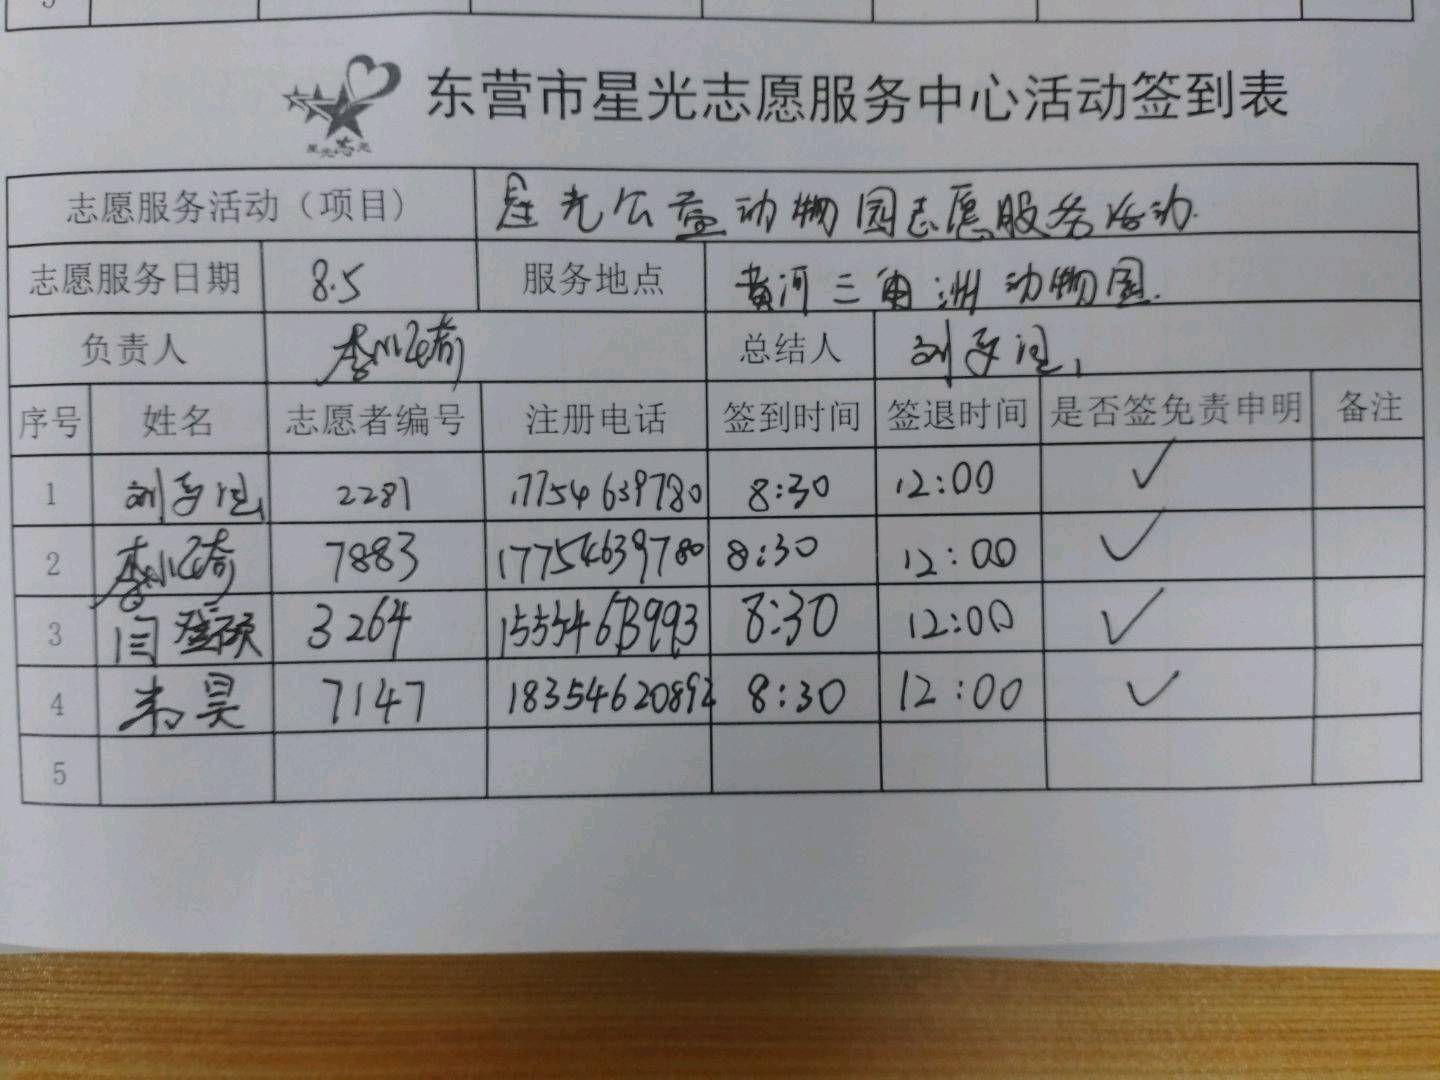 东营市星光志愿服务中心活动签到表
志愿服务活动（项目） 星光公益动物园志愿服务活动.
志愿服务日期 8.5 服务地点 黄河三角洲动物园.
负责人 总结人 刘
序号 姓名 志愿者编号 注册电话 签到时间 签退时间 是否签免责申明 备注
1 刘 2281 17754639780 8:30 12:00 ✓
2 李 7883 17754639780 8:30 12:00 ✓
3 闫 3264 8:30 12:00 ✓
4 昊 7147 18354620892 8:30 12:00 ✓
5